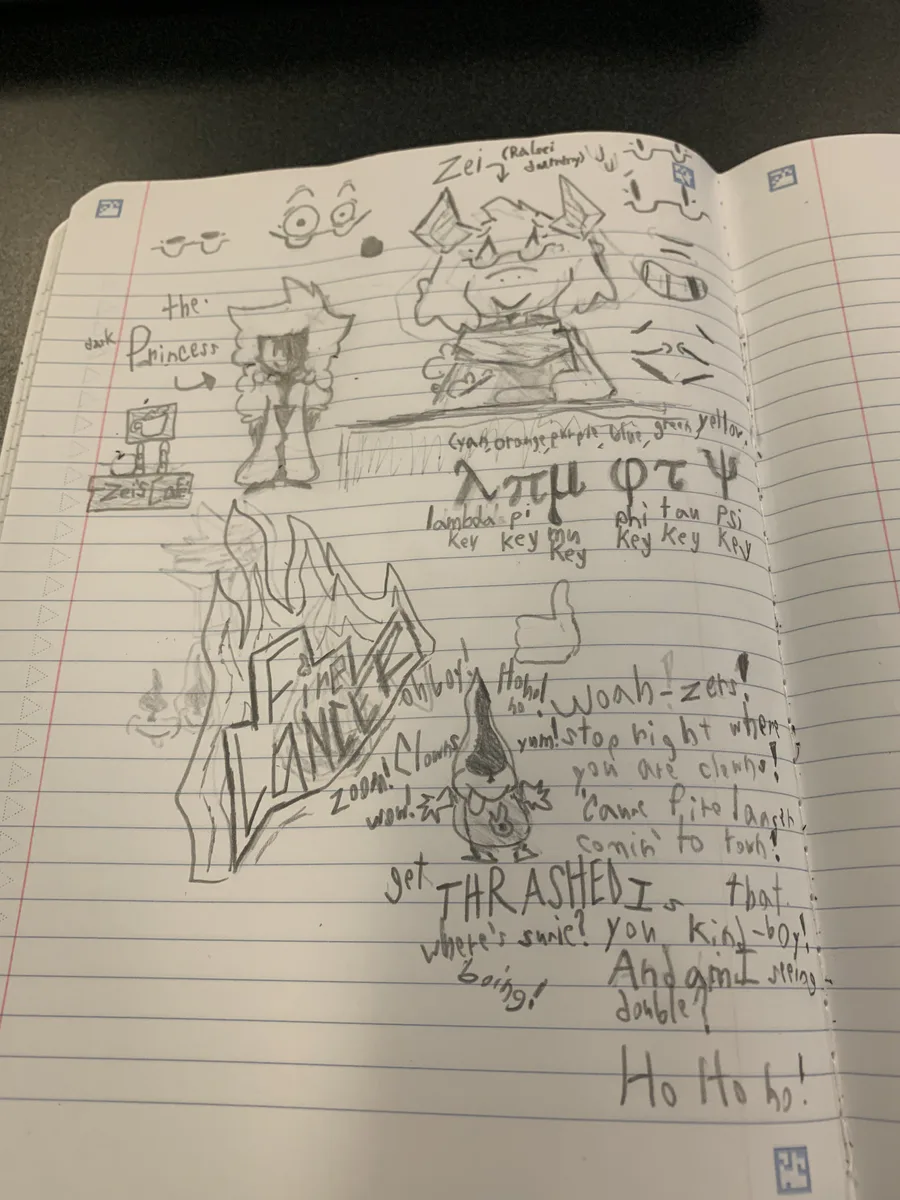 Zei
(Ralsei
the
dark
Princess
Zei's Cafe
cyan, orange, purple, blue, green, yellow
λ π μ φ τ ψ
lambda pi mu phi tau psi
key key key key key key
Fire
LANCE
oh boy!
Hoho!
ho!
yum!
Clowns
zoom!
wow!
Woah-zers!
stop right where
you are clowns!
'Cause fire lancer
comin' to town!
get THRASHED
where's susie?
boing!
Is that
you kind-boy!
And am I seeing
double?
Ho Ho ho!